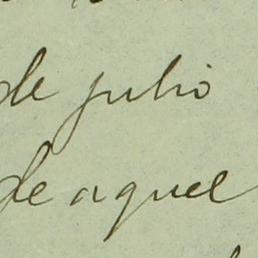 de julio
de aquel